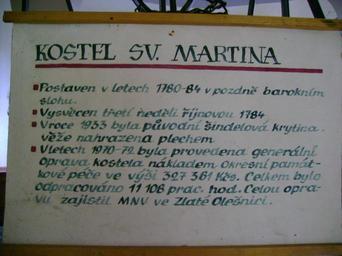 KOSTEL SV. MARTINA
Postaven v letech 1780-84 v pozdně barokním
slohu.
Vysvěcen třetí neděli říjnovou 1784
V roce 1933 byla původní šindelová krytina
věže nahrazena plechem
V letech 1970-72 byla provedena generální
oprava kostela nákladem okresní památ-
kové péče ve výši 327 361 Kčs. Celkem bylo
odpracováno 11 108 prac. hod. Celou opra-
vu zajistil MNV ve Zlaté Olešnici.